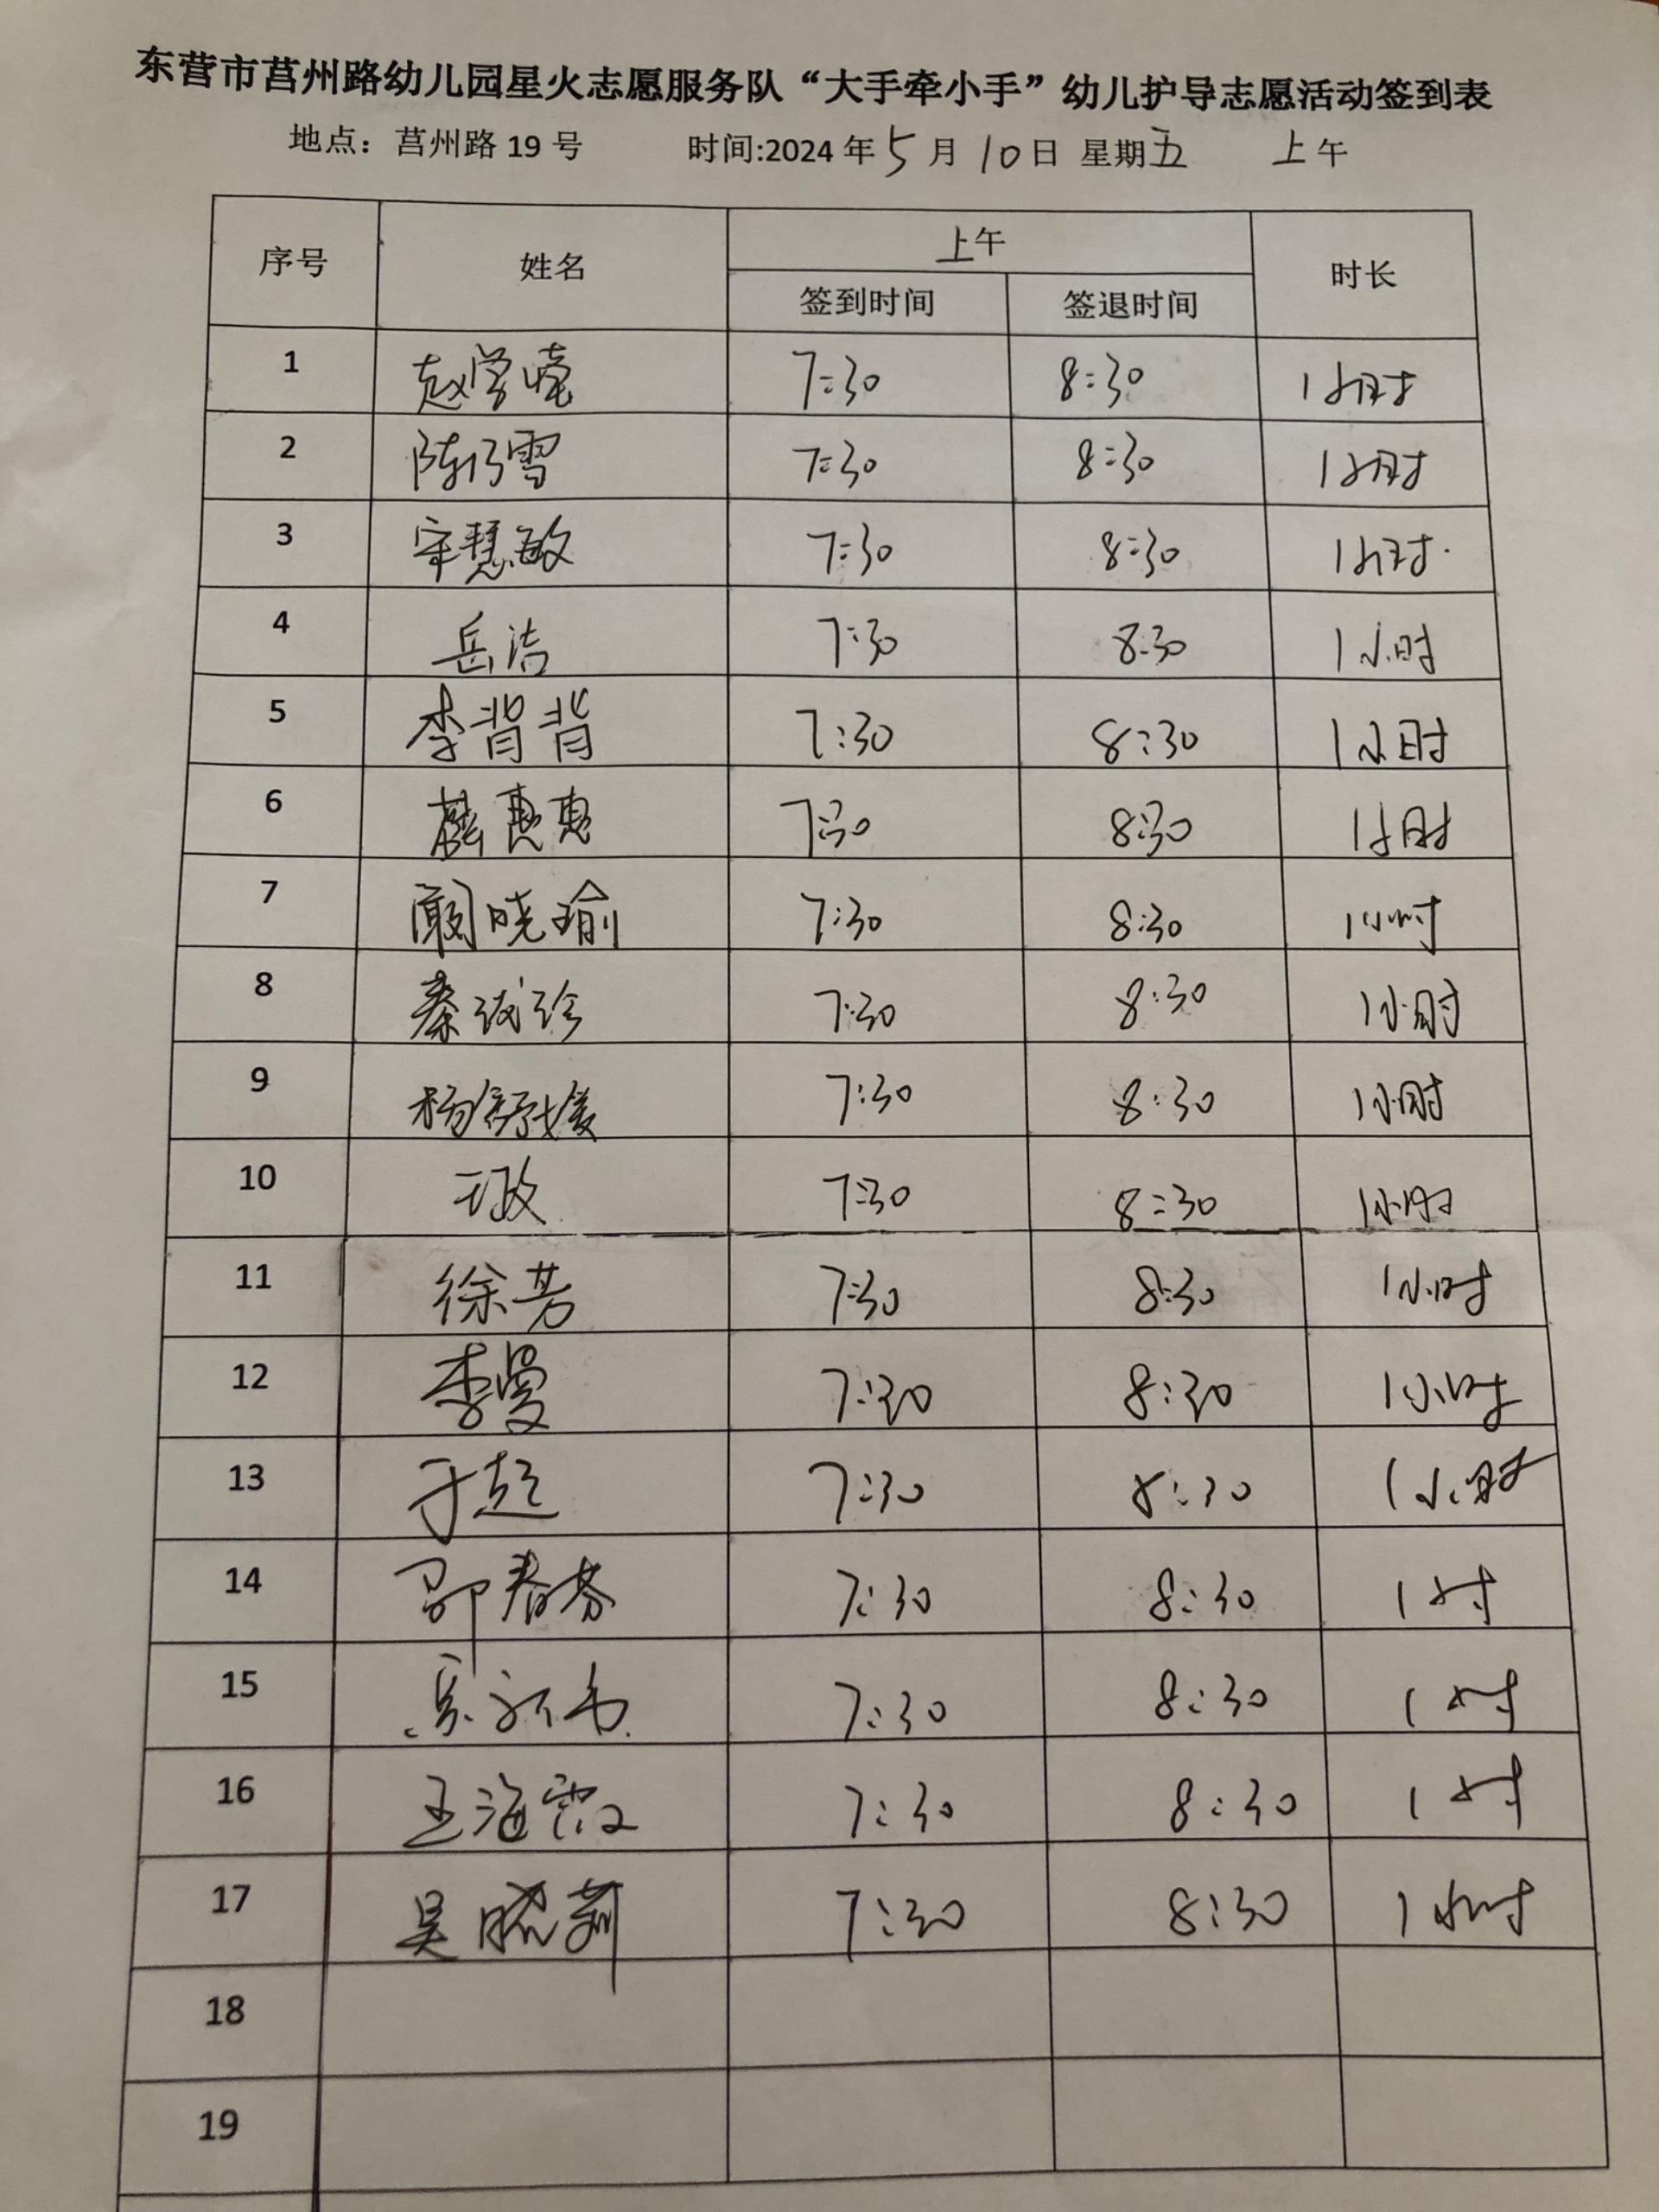 东营市莒州路幼儿园星火志愿服务队“大手牵小手”幼儿护导志愿活动签到表
地点：莒州路 19 号 时间:2024 年 5 月 10 日 星期五 上午
序号 姓名 上午 时长
签到时间 签退时间
1 赵学 7:30 8:30 1小时
2 陈乃雪 7:30 8:30 1小时
3 宋慧敏 7:30 8:30 1小时
4 岳洁 7:30 8:30 1小时
5 李背背 7:30 8:30 1小时
6 惠惠 7:30 8:30 1小时
7 阚晓瑜 7:30 8:30 1小时
8 秦诚珍 7:30 8:30 1小时
9 杨舒媛 7:30 8:30 1小时
10 王政 7:30 8:30 1小时
11 徐芳 7:30 8:30 1小时
12 李曼 7:30 8:30 1小时
13 于超 7:30 8:30 1小时
14 邵春芬 7:30 8:30 1小时
15 7:30 8:30 1小时
16 王海霞 7:30 8:30 1小时
17 吴晓莉 7:30 8:30 1小时
18
19